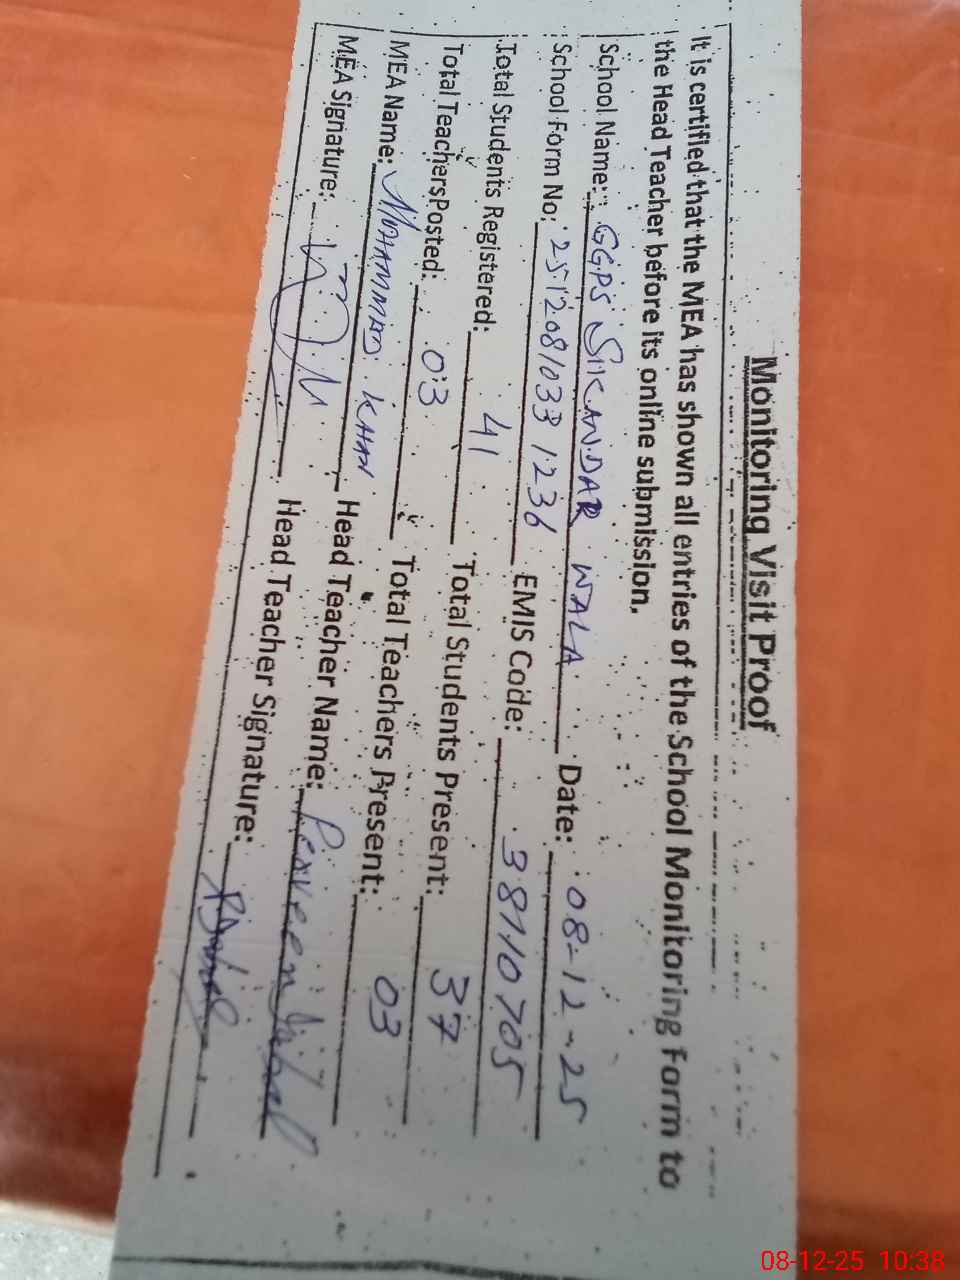 Monitoring Visit Proof
It is certified that the MEA has shown all entries of the School Monitoring Form to
the Head Teacher before its online submission.
School Name: GGPS SIKANDAR WALA Date: 08-12-25
School Form No: 2512081033 1236 EMIS Code: 38110705
Total Students Registered: 41 Total Students Present: 37
Total Teachers Posted: 03 Total Teachers Present: 03
MEA Name: MOHAMMAD KHAN Head Teacher Name: Perveen
MEA Signature: Head Teacher Signature:
08-12-25 10:38